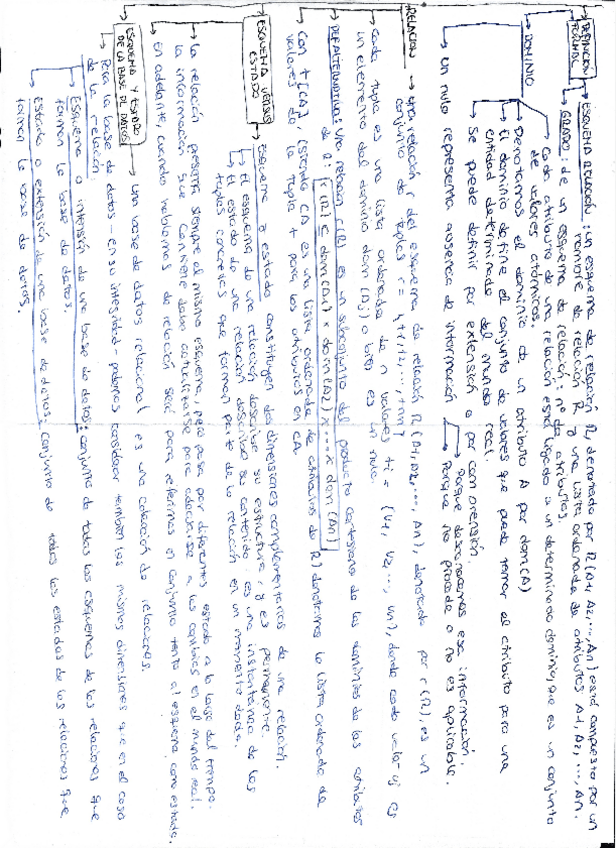 DEFINICIÓN FORMAL
ESQUEMA RELACIÓN: un esquema de relación R, denotado por R(A1, A2, ..., An) está compuesto por un
nombre de relación R y una lista ordenada de atributos A1, A2, ..., An.
GRADO: de un esquema de relación: nº de atributos.
Cada atributo de una relación está ligado a un determinado dominio, que es un conjunto
de valores atómicos.
DOMINIO
Denotamos el dominio de un atributo A por dom(A)
El dominio define el conjunto de valores que puede tomar el atributo para una
entidad determinada del mundo real.
Se puede definir por extensión o por comprensión.
un nulo representa ausencia de información
Porque desconocemos esa información.
Porque no procede o no es aplicable.
RELACION → una relación r del esquema de relación R(A1, A2, ..., An), denotado por r(R), es un
conjunto de tuplas r = {t1, t2, ..., tm}
Cada tupla es una lista ordenada de n valores ti = {v1, v2, ..., vn}, donde cada valor vj es
un elemento del dominio dom(Aj) o bien es un nulo.
DEF ALTERNATIVA: Una relación r(R) es un subconjunto del producto cartesiano de los dominios de los atributos
de R: r(R) ⊆ dom(A1) × dom(A2) × ... × dom(An)
Con t[CA], (siendo CA es una lista ordenada de atributos de R) denotamos la lista ordenada de
valores de la tupla t para los atributos en CA
ESQUEMA VERSUS ESTADO
Esquema y estado constituyen dos dimensiones complementarias de una relación.
El esquema de una relación describe su estructura, y es permanente.
El estado de una relación describe su contenido: es una instantánea de las
tuplas concretas que forman parte de la relación en un momento dado.
La relación presenta siempre el mismo esquema, pero pasa por diferentes estado a lo largo del tiempo.
la información que contiene debe actualizarse para adecuarse a los cambios en el mundo real.
En adelante, cuando hablemos de relación será para referirnos al conjunto tanto al esquema como estado.
ESQUEMA Y ESTADO DE LA BASE DE DATOS
una base de datos relacional es una colección de relaciones.
Para la base de datos - en su integridad - podemos considerar también las mismas dimensiones que en el caso
de la relación:
Esquema o intensión de una base de datos: conjunto de todos los esquemas de las relaciones que
forman la base de datos.
estado o extensión de una base de datos: conjunto de todos los estados de las relaciones que
forman la base de datos.